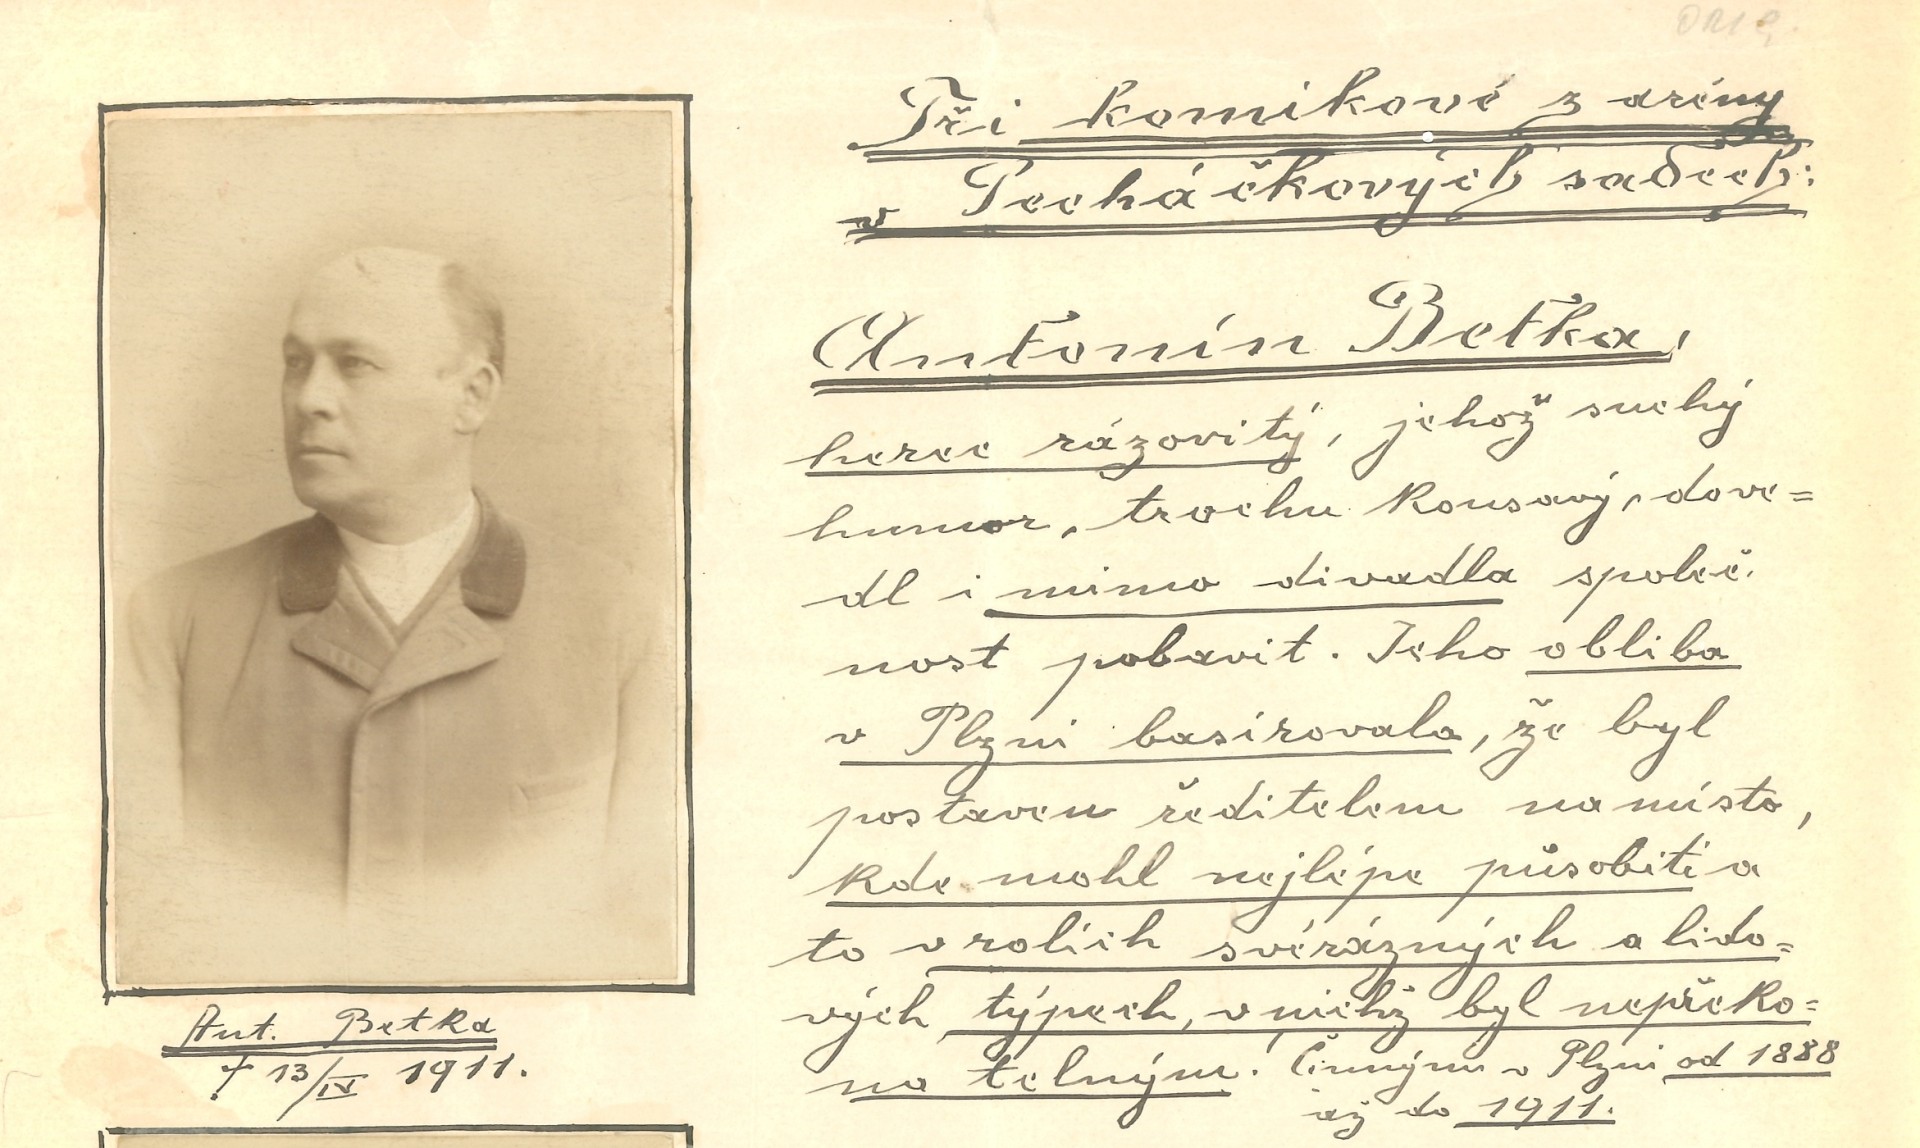 ORIG.
Tři komikové z arény
v Pecháčkových sadech:
Antonín Betka,
herec rázovitý, jehož suchý
humor, trochu kousavý, dove=
dl i mimo divadla společ.
nost pobavit. Jeho obliba
v Plzni basírovala, že byl
postaven ředitelem na místo,
kde mohl nejlépe působiti a
to v rolích svérázných a lido=
vých týpech, v nichž byl nepřeko=
natelným. Činným v Plzni od 1888
až do 1911.
Ant. Betka
† 13/IV 1911.